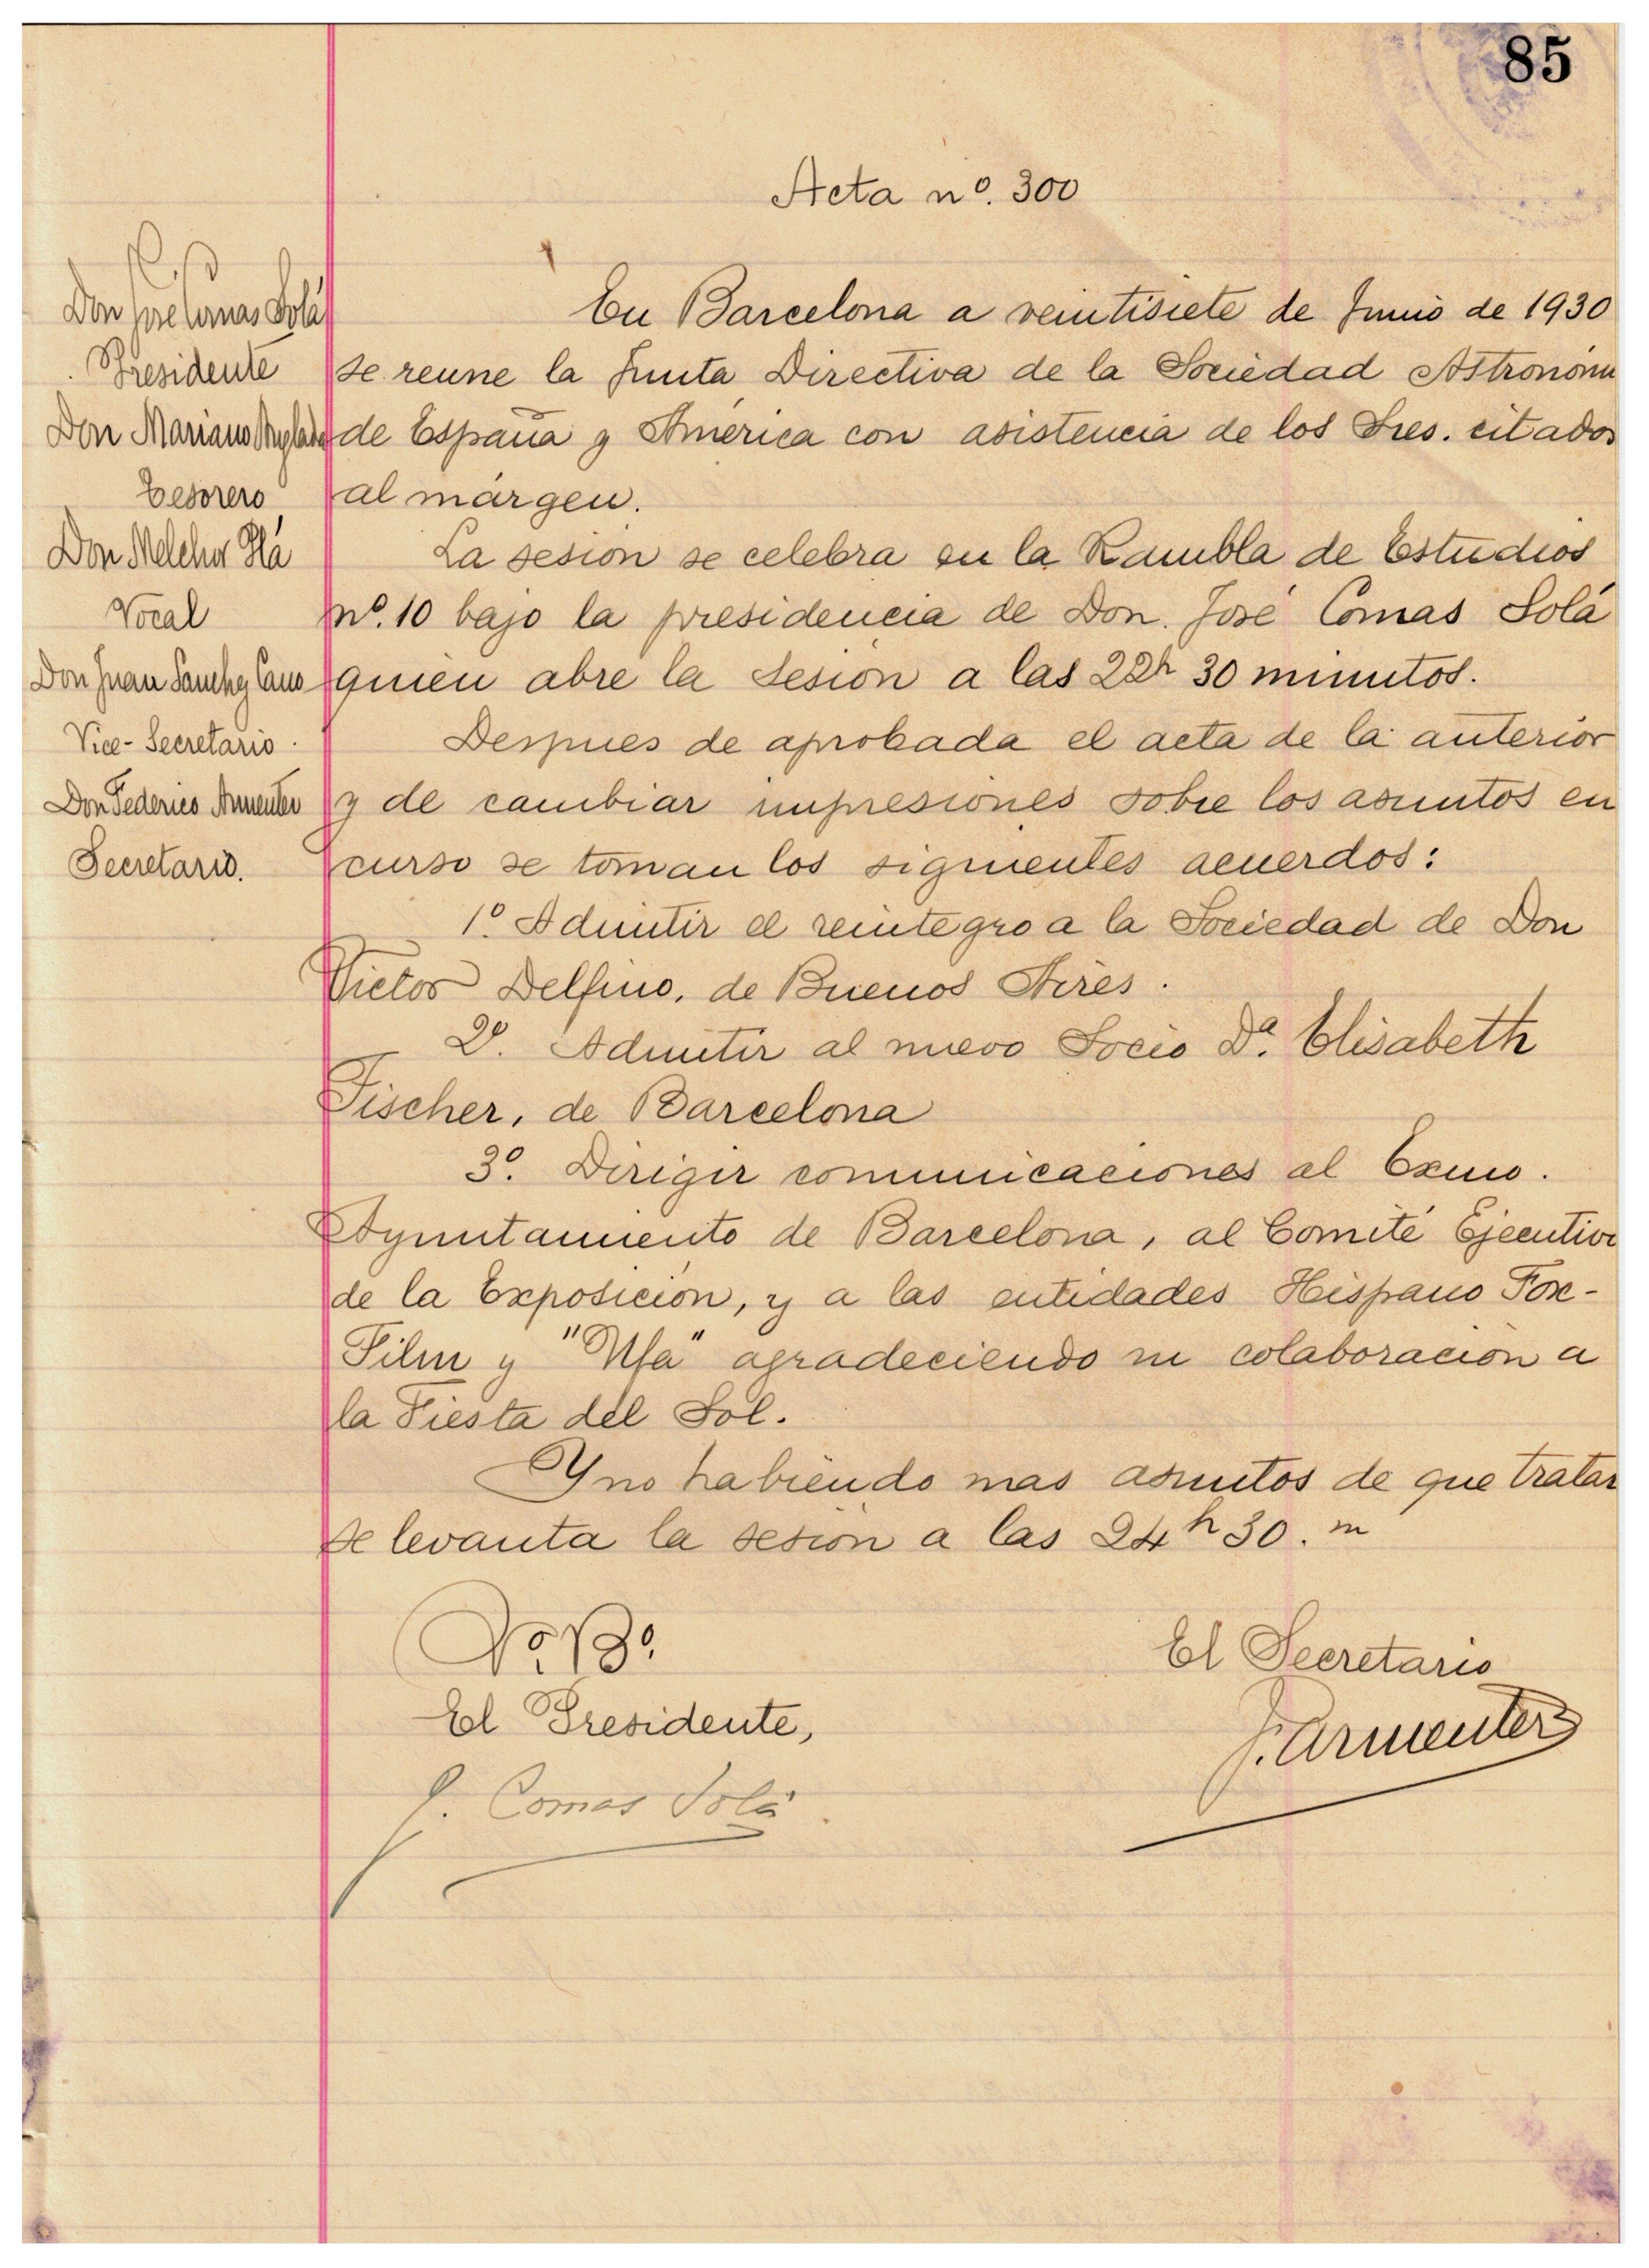 85
Acta nº. 300
Don José Comas Solá
Presidente
Don Mariano Anglada
Tesorero
Don Melchor Plá
Vocal
Don Juan Sanchez Cano
Vice-Secretario
Don Federico Armenter
Secretario.
En Barcelona a veintisiete de Junio de 1930
se reune la Junta Directiva de la Sociedad Astronómi
de España y América con asistencia de los Sres. citados
al márgen.
La sesión se celebra en la Rambla de Estudios
nº. 10 bajo la presidencia de Don. José Comas Solá
quien abre la sesión a las 22h 30 minutos.
Despues de aprobada el acta de la anterior
y de cambiar impresiones sobre los asuntos en
curso se toman los siguientes acuerdos:
1º. Admitir el reintegro a la Sociedad de Don
Victor Delfino, de Buenos Aires.
2º. Admitir al nuevo Socio Dª. Elisabeth
Fischer, de Barcelona
3º. Dirigir comunicaciones al Exmo.
Ayuntamiento de Barcelona, al Comité Ejecutivo
de la Exposición, y a las entidades Hispano Fox-
Film y "Ufa" agradeciendo su colaboración a
la Fiesta del Sol.
Y no habiendo mas asuntos de que tratar
se levanta la sesión a las 24h 30. m
Vº. Bº.
El Presidente,
J. Comas Solá
El Secretario
F. Armenter